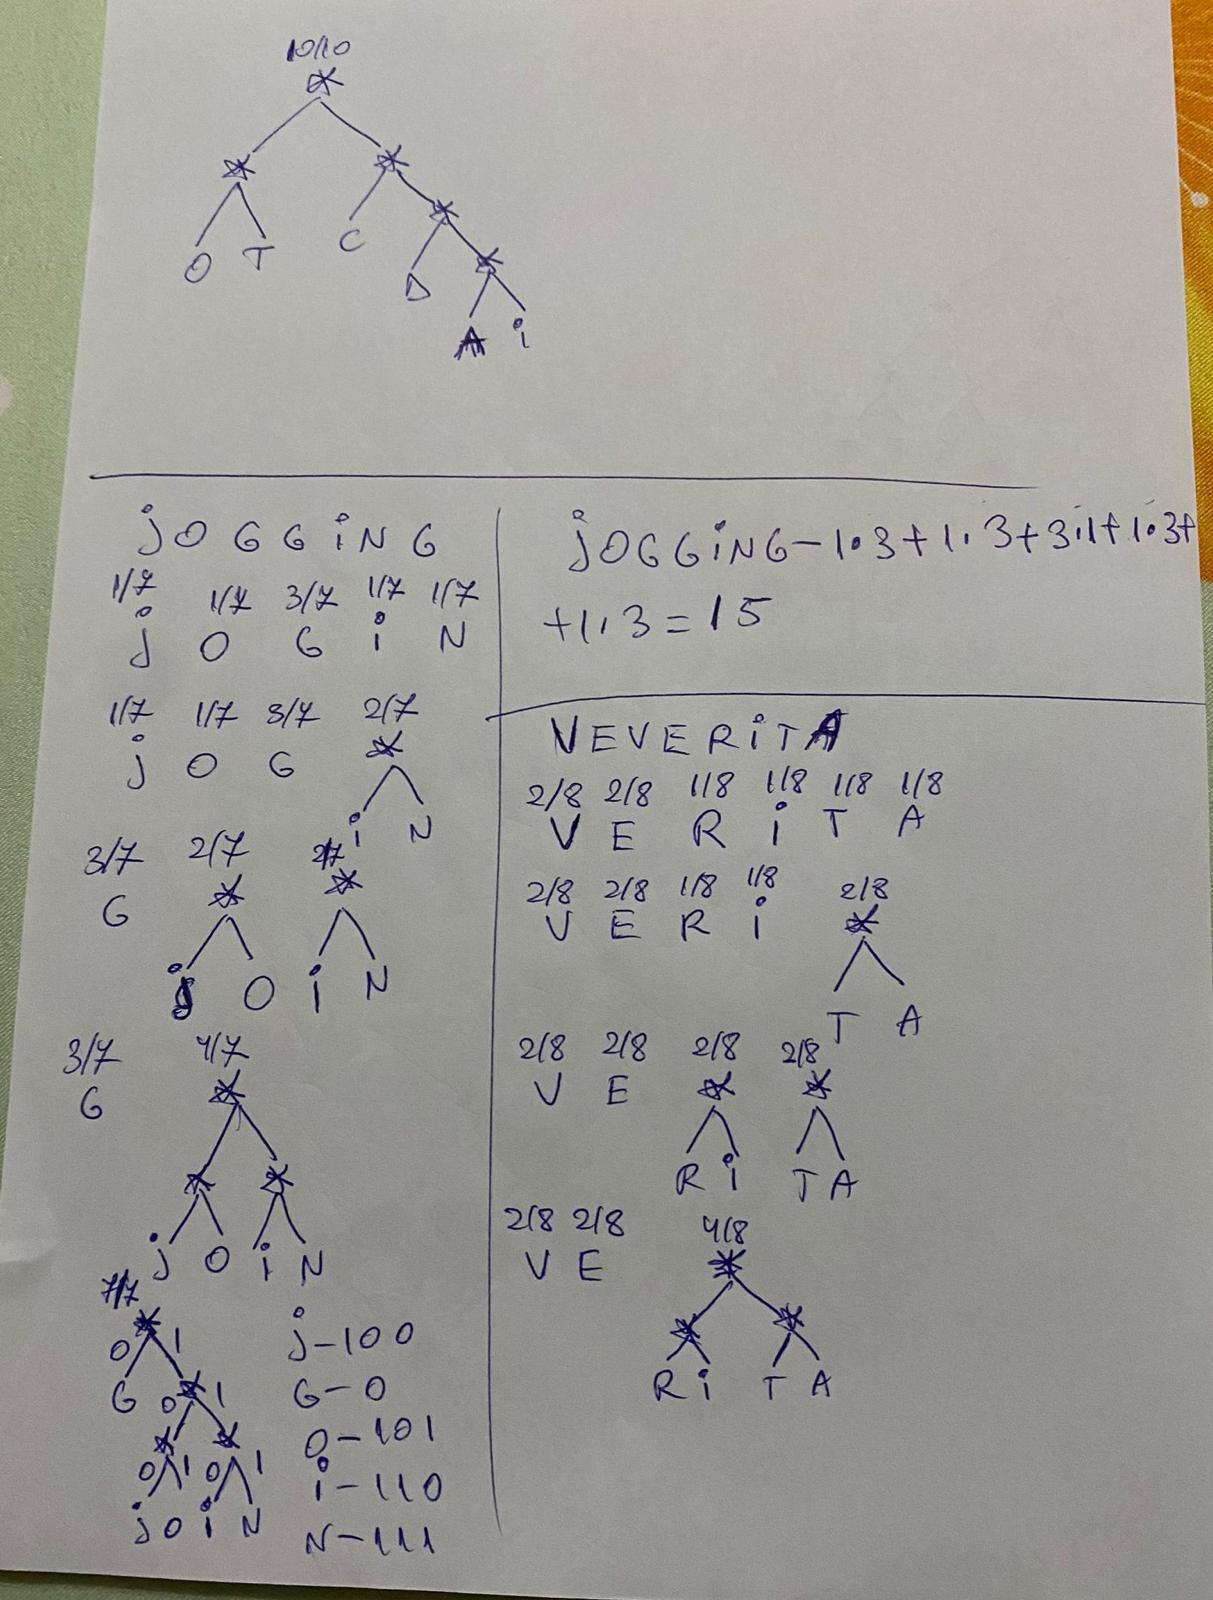 10/10
*
* *
O T C *
D *
A i
jOGGiNG
1/7 1/7 3/7 1/7 1/7
j O G i N
1/7 1/7 3/7 2/7
j O G *
i N
3/7 2/7 2/7
G * *
j O i N
3/7 4/7
G *
* *
j O i N
7/7
*
0 1
G * 
0 1
* *
0 1 0 1
j O i N
j-100
G-0
O-101
i-110
N-111
jOGGiNG-1·3+1·3+3·1+1·3+
+1·3=15
VEVERiTA
2/8 2/8 1/8 1/8 1/8 1/8
V E R i T A
2/8 2/8 1/8 1/8 2/8
V E R i *
T A
2/8 2/8 2/8 2/8
V E * *
R i T A
2/8 2/8 4/8
V E *
* *
R i T A